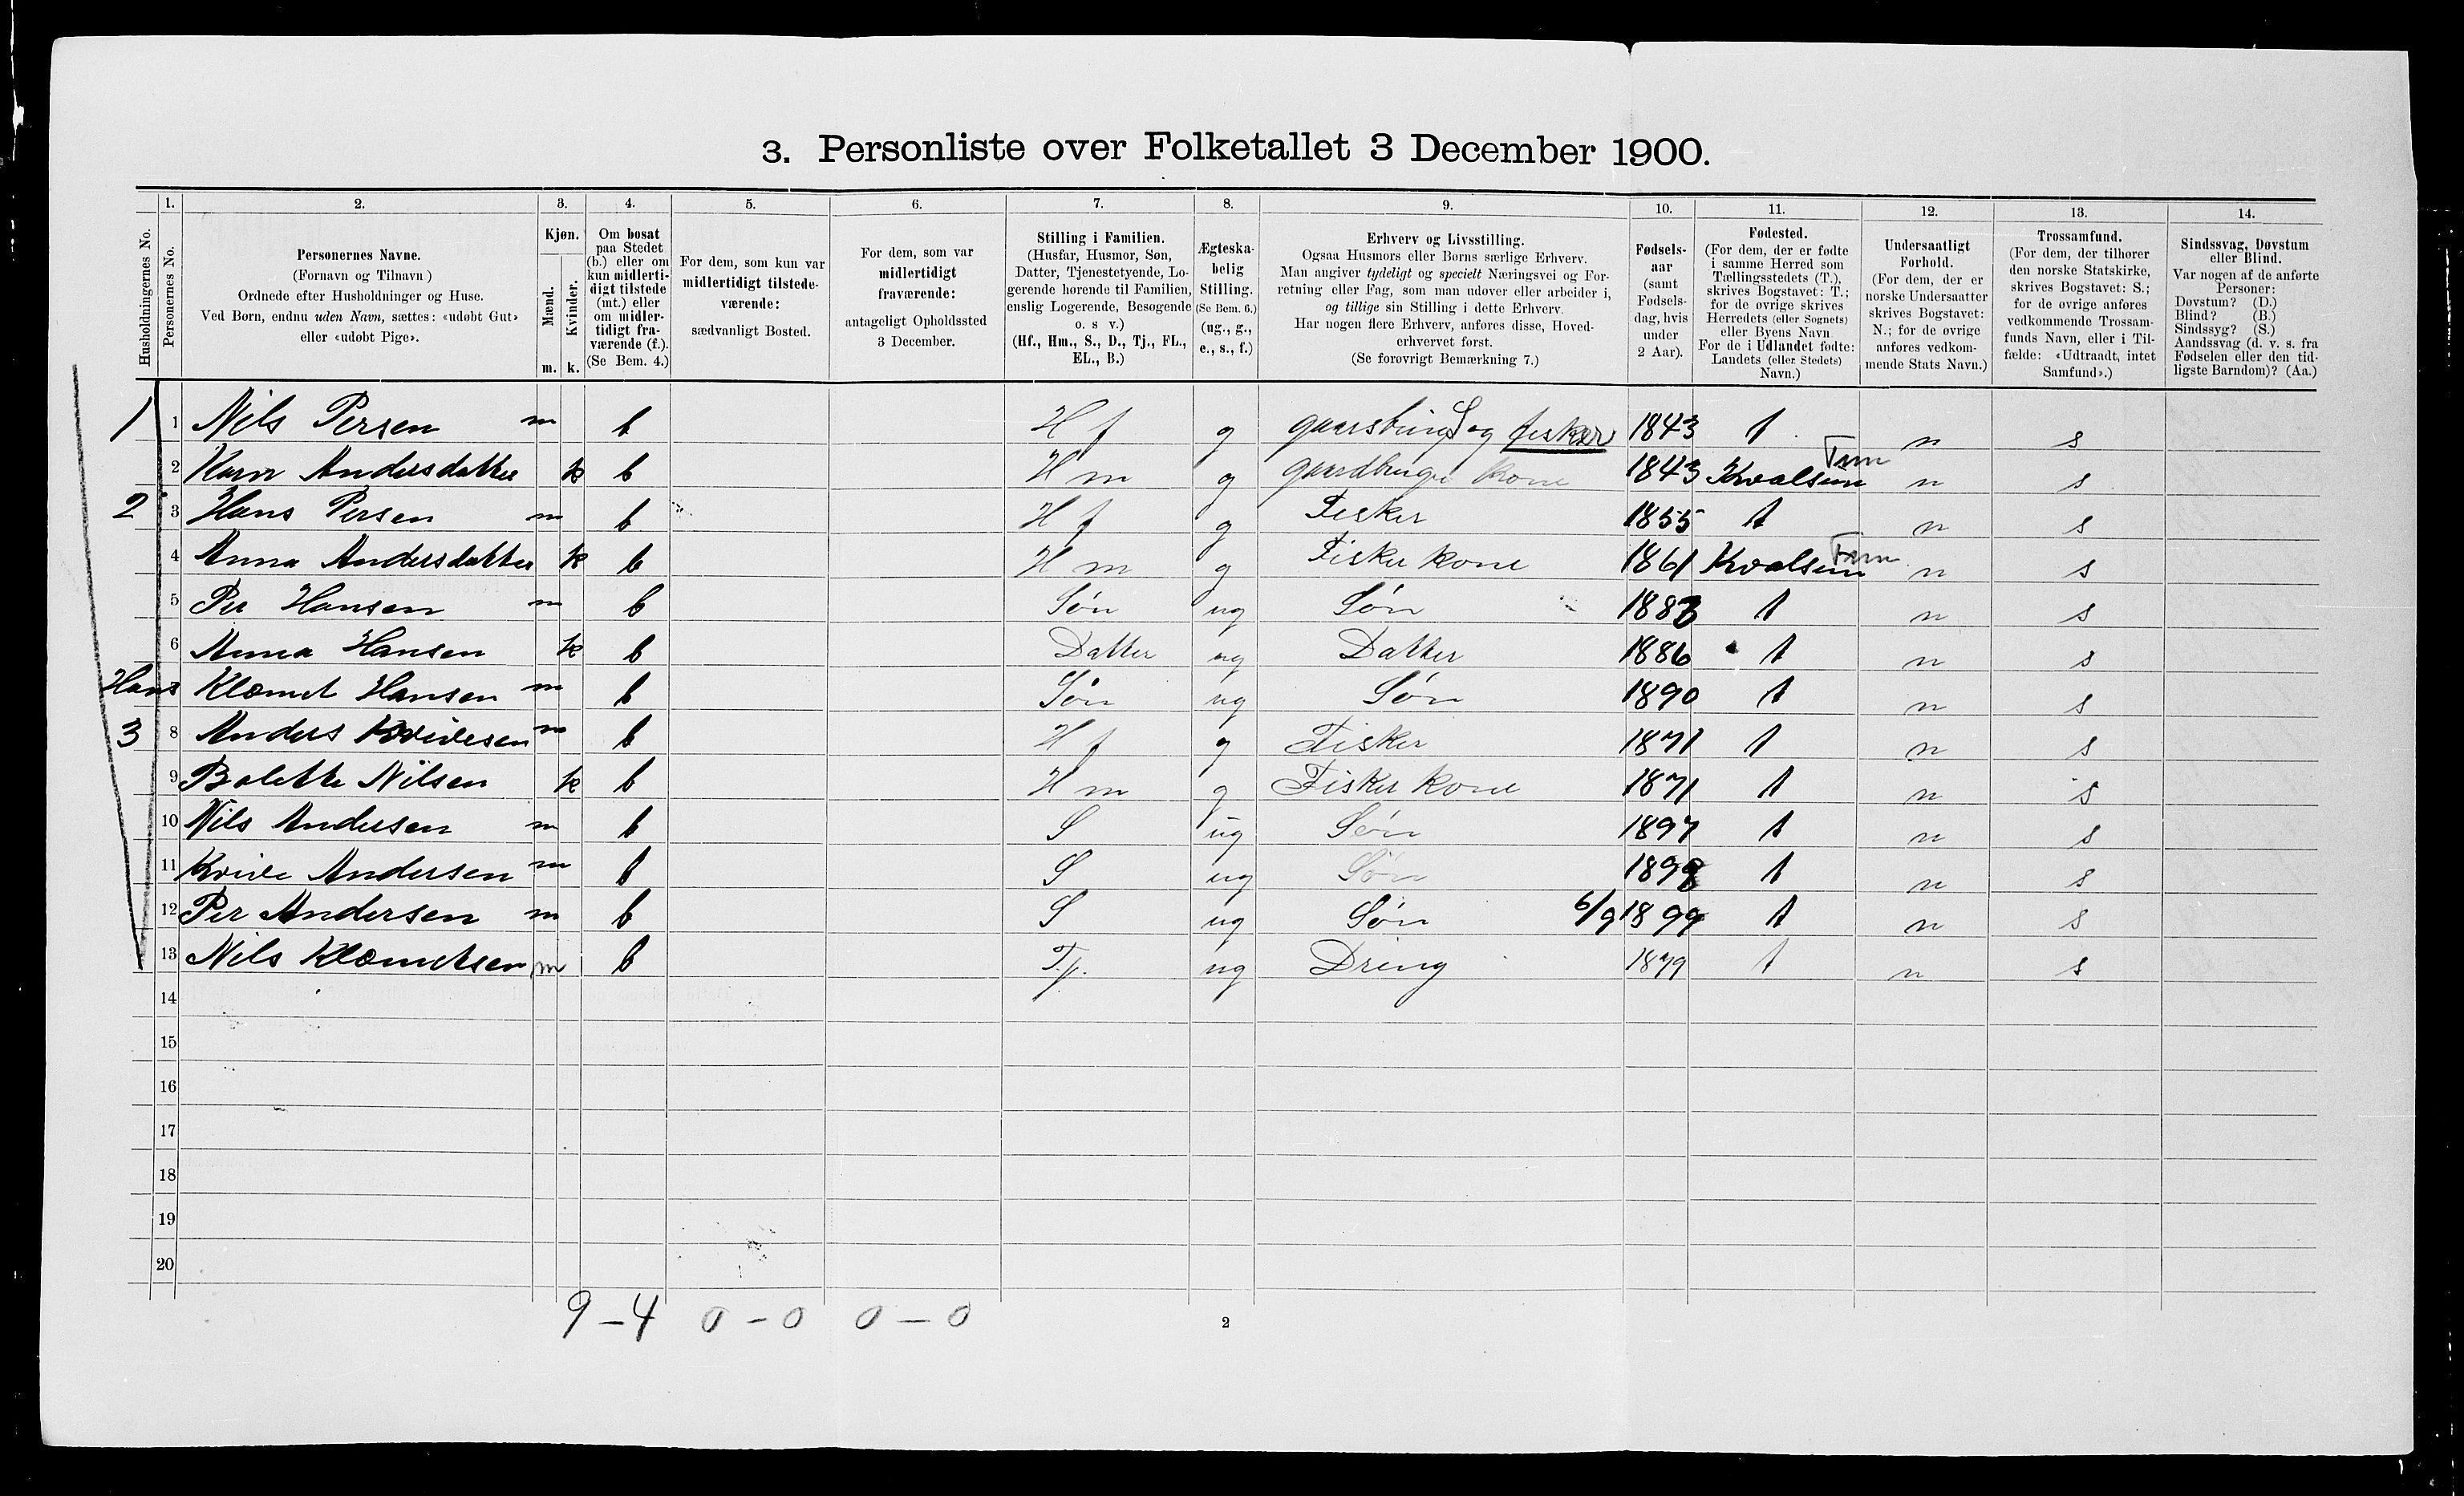 3. Personliste over Folketallet 3 December 1900.
1. 2. 3. 4. 5. 6. 7. 8. 9. 10. 11. 12. 13. 14.
Husholdningernes No.
Personernes No.
Personernes Navne.
(Fornavn og Tilnavn)
Ordnede efter Husholdninger og Huse.
Ved Børn, endnu uden Navn, sættes: «udøbt Gut»
eller «udøbt Pige».
Kjøn.
Mænd.
Kvinder.
m. k.
Om bosat
paa Stedet
(b.) eller om
kun midlerti-
digt tilstede
(mt.) eller
om midler-
tidigt fra-
værende (f.).
(Se Bem. 4.)
For dem, som kun var
midlertidigt tilstede-
værende:
sædvanligt Bosted.
For dem, som var
midlertidigt
fraværende:
antageligt Opholdssted
3 December.
Stilling i Familien.
(Husfar, Husmor, Søn,
Datter, Tjenestetyende, Lo-
gerende hørende til Familien,
enslig Logerende, Besøgende
o. s v.)
(Hf., Hm., S., D., Tj., FL.,
EL., B.)
Ægteska-
belig
Stilling.
(Se Bem. 6.)
(ug., g.,
e., s., f.)
Erhverv og Livsstilling.
Ogsaa Husmors eller Børns særlige Erhverv.
Man angiver tydeligt og specielt Næringsvei og For-
retning eller Fag, som man udøver eller arbeider i,
og tillige sin Stilling i dette Erhverv.
Har nogen flere Erhverv, anføres disse, Hoved-
erhvervet først.
(Se forøvrigt Bemærkning 7.)
Fødsels-
aar
(samt
Fødsels-
dag, hvis
under
2 Aar).
Fødested.
(For dem, der er fødte
i samme Herred som
Tællingsstedets (T.),
skrives Bogstavet: T.;
for de øvrige skrives
Herredets (eller Sognets)
eller Byens Navn
For de i Udlandet fødte:
Landets (eller Stedets)
Navn.)
Undersaatligt
Forhold.
(For dem, der er
norske Undersaatter
skrives Bogstavet:
N.; for de øvrige
anføres vedkom-
mende Stats Navn.)
Trossamfund.
(For dem, der tilhører
den norske Statskirke,
skrives Bogstavet: S.;
for de øvrige anføres
vedkommende Trossam-
funds Navn, eller i Til-
fælde: «Udtraadt, intet
Samfund».)
Sindssvag, Døvstum
eller Blind.
Var nogen af de anførte
Personer:
Døvstum? (D.)
Blind? (B.)
Sindssyg? (S.)
Aandssvag (d. v. s. fra
Fødselen eller den tid-
ligste Barndom)? (Aa.)
1 1 Nils Persen m b Hf g og fisker 1843 t n s
2 Karn Andersdatter k b Hm g kone 1843 Kvalsun Fnm n s
2 3 Hans Persen m b Hf g Fisker 1855 t n s
4 Anna Andersdatter k b Hm g Fisker kone 1861 Kvalsun Fnm n s
5 Per Hansen m b Søn ug Søn 1883 t n s
6 Anna Hansen k b Datter ug Datter 1886 t n s
Hans Klemet Hansen m b Søn ug Søn 1890 t n s
3 8 Anders Kvivesen m b Hf g Fisker 1871 t n s
9 Balette Nilsen k b Hm g Fisker kone 1871 t n s
10 Nils Andersen m b S ug Søn 1897 t n s
11 Kvive Andersen m b S ug Søn 1898 t n s
12 Per Andersen m b S ug Søn 6/9 1899 t n s
13 Nils Klemetsen m b Tj. ug Dreng 1879 t n s
14
15
16
17
18
19
20
9 - 4 0 - 0 0 - 0
2